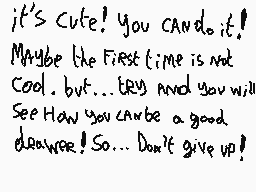 it's cute! you can do it!
Maybe the first time is not
cool. but... try and you will
see how you can be a good
drawer! So... Don't give up!